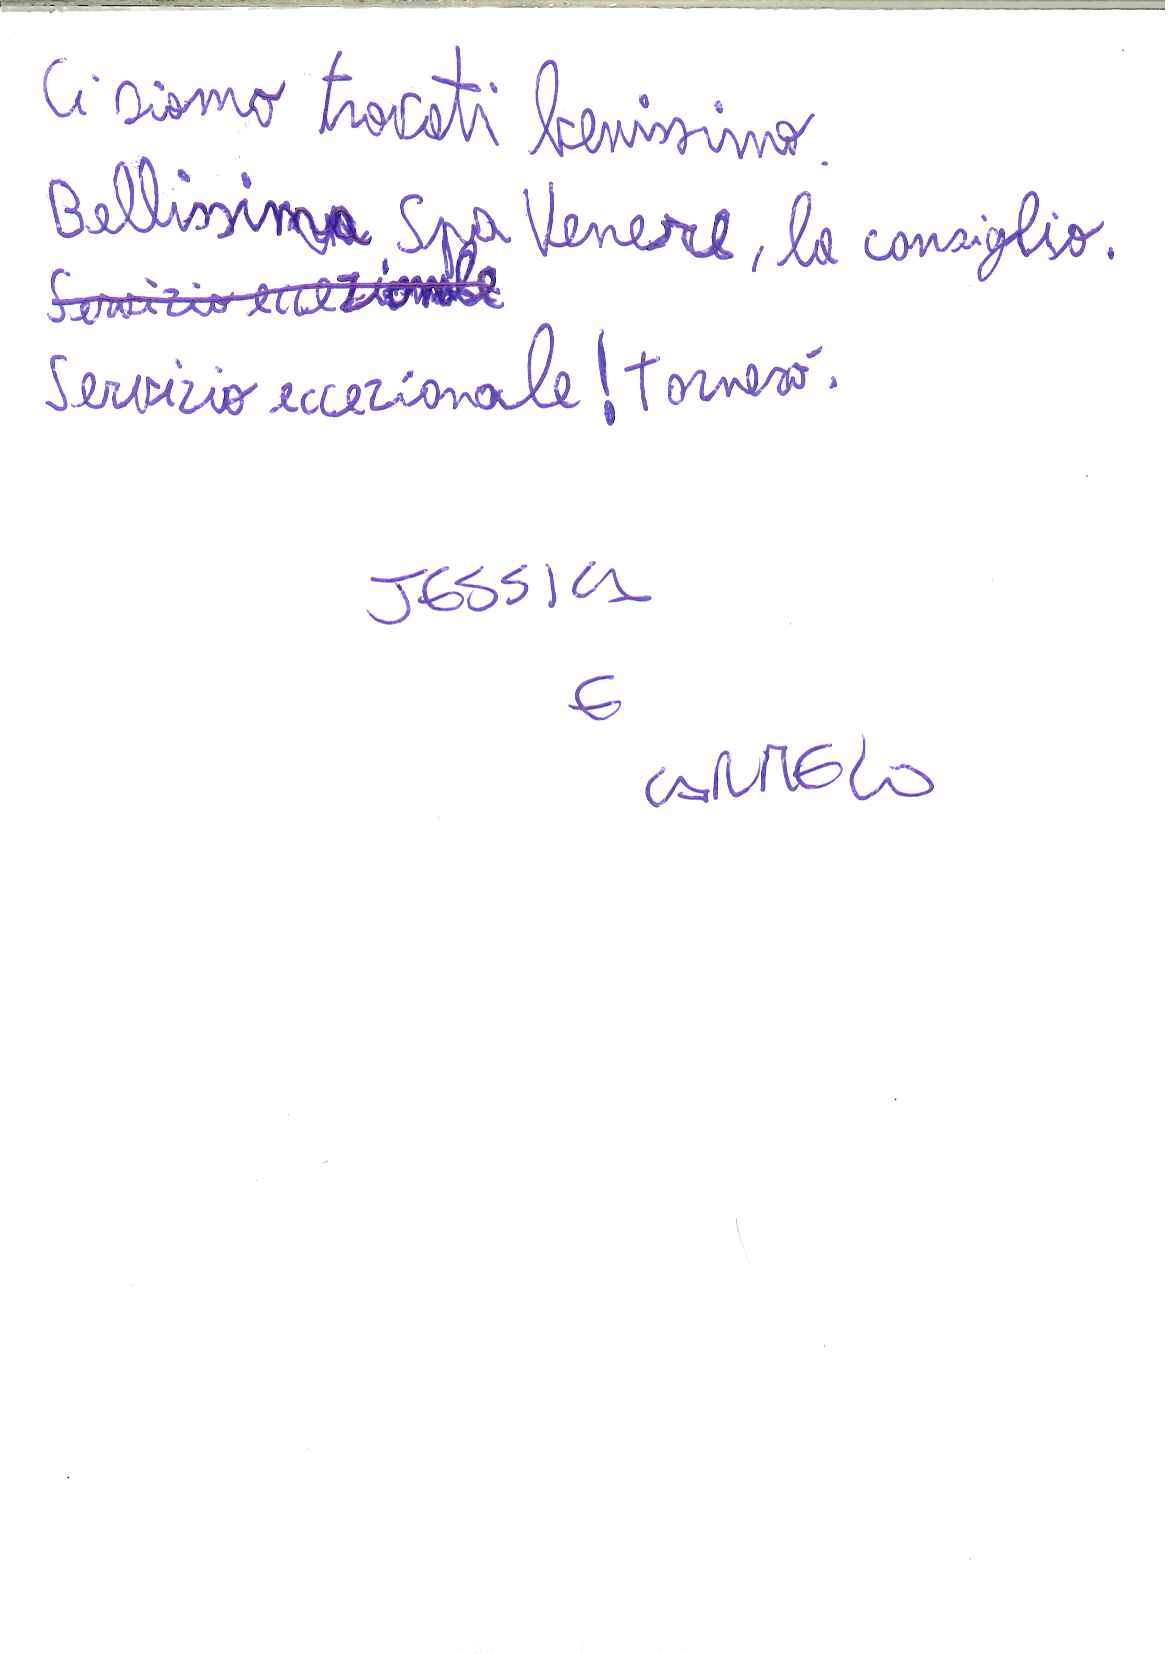 Ci siamo trovati benissimo.
Bellissima Spa Venere, la consiglio.
Servizio eccezionale
Servizio eccezionale! Tornerò.
JESSICA
E
CARMELO